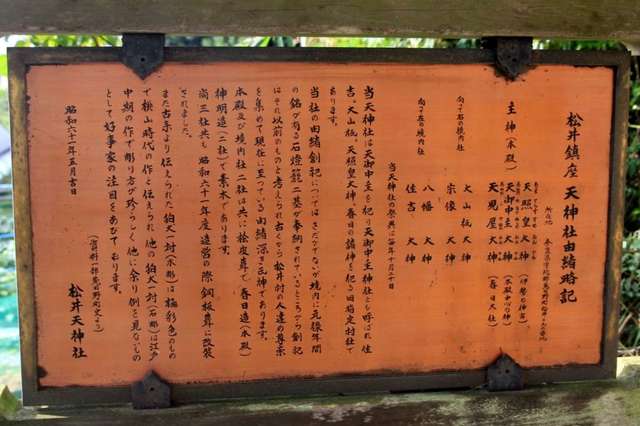 松井鎮座 天神社由緒略記
主神(本殿)
天照皇大神 (伊勢の神宮)
天御中主大神 (本殿中心の神)
天児屋大神 (春日の大社)
向って右の境内社
大山祇 大神
宗像 大神
向って左の境内社
八幡 大神
住吉 大神
当天神社の祭典は毎年十月二十日
当天神社は天御中主を祀り天御中主神社とも呼ばれ住
吉、大山祇、天照皇大神、春日の諸神を祀る旧菊丈村社で
あります。
当社の由緒創記についてはさだかでないが境内に元禄年間
の銘が有る石燈籠二基が奉納されているところから創記
はそれ以前のものと考えられ古くから松井村の人達の尊崇
を集めて現在に至っている由緒深き氏神であります。
本殿及び境内社二社は共に桧皮葺で春日造(本殿)
神明造(二社)で素木であります。
尚三社共も昭和六十一年度造営の際銅板葺に改装
されました。
また古来より伝えられた狛犬一対(木彫)は極彩色のもの
で桃山時代の作と伝えられ他の狛犬一対(石彫)は江戸
中期の作で彫り方が珍らしく他に余り例を見ないもの
として好事家の注目をあびております。
昭和六十一年五月吉日
松井天神社